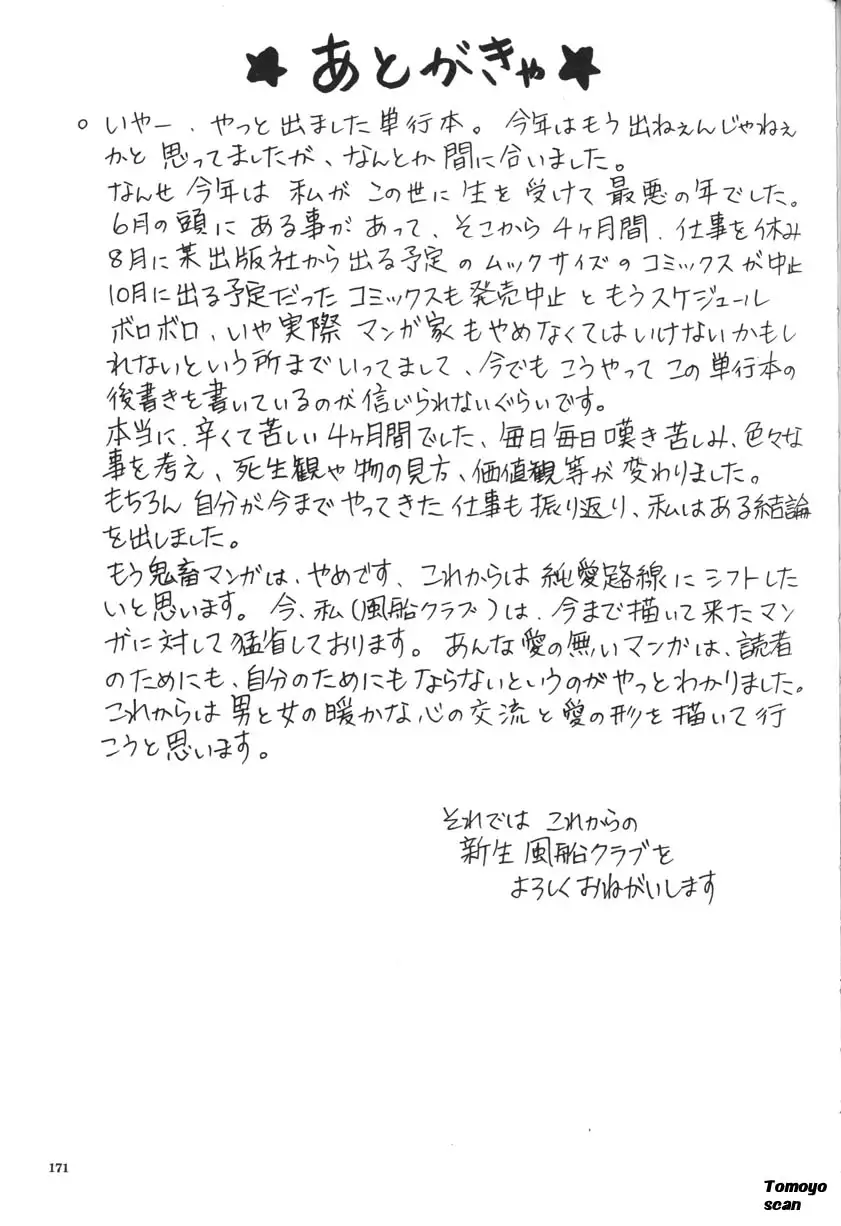 ★ あとがきゃ ★
○ いやー、やっと出ました単行本。今年はもう出ねぇんじゃねぇ
かと思ってましたが、なんとか間に合いました。
なんせ今年は私がこの世に生を受けて最悪の年でした。
6月の頭にある事があって、そこから4ヶ月間、仕事を休み
8月に某出版社から出る予定のムックサイズのコミックスが中止
10月に出る予定だったコミックスも発売中止ともうスケジュール
ボロボロ、いや実際マンガ家もやめなくてはいけないかもし
れないという所までいってまして、今でもこうやってこの単行本の
後書きを書いているのが信じられないぐらいです。
本当に、辛くて苦しい4ヶ月間でした、毎日毎日嘆き苦しみ、色々な
事を考え、死生観や物の見方、価値観等が変わりました。
もちろん自分が今までやってきた仕事も振り返り、私はある結論
を出しました。
もう鬼畜マンガは、やめです、これからは純愛路線にシフトした
いと思います。今、私(風船クラブ)は、今まで描いて来たマン
ガに対して猛省しております。あんな愛の無いマンガは、読者
のためにも、自分のためにもならないというのがやっとわかりました。
これからは男と女の暖かな心の交流と愛の形を描いて行
こうと思います。
それではこれからの
新生風船クラブを
よろしくおねがいします
171
Tomoyo
scan